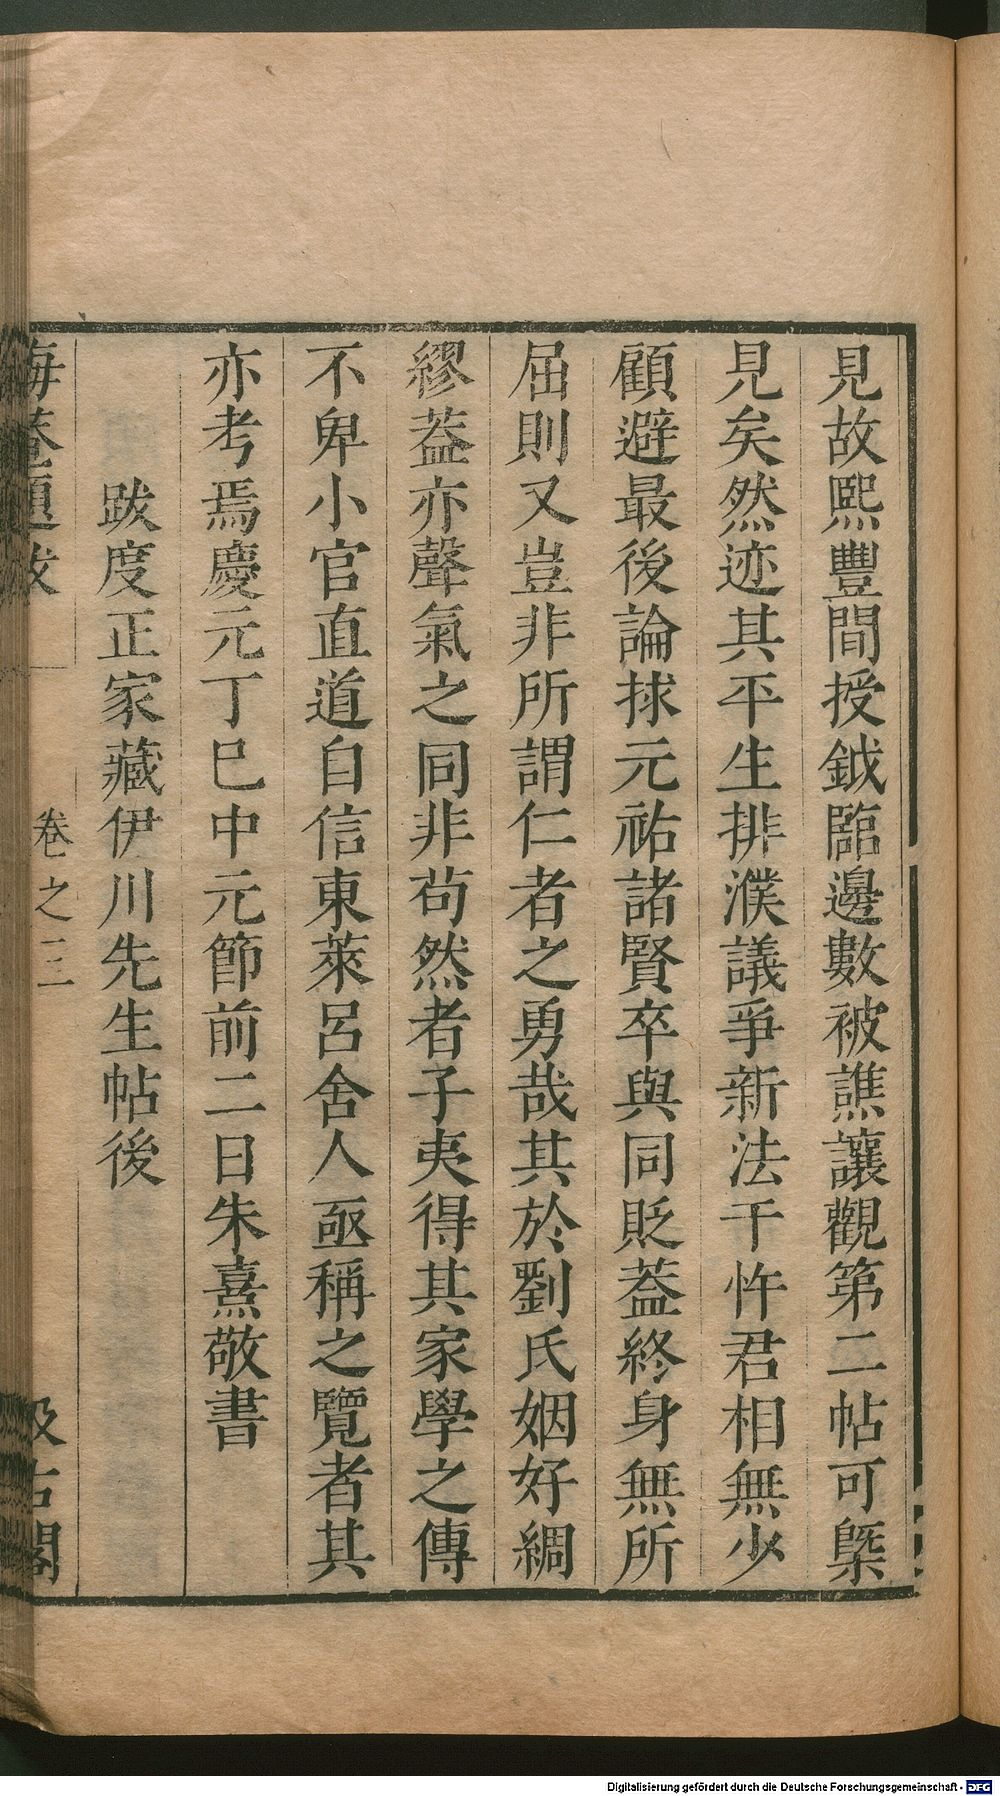 見故熙豐間授鉞臨邊數被譙讓觀第二帖可槩
見矣然迹其平生排濮議爭新法干忤君相無少
顧避最後論捄元祐諸賢卒與同貶葢終身無所
屈則又豈非所謂仁者之勇哉其於劉氏姻好綢
繆葢亦聲氣之同非茍然者子夷得其家學之傳
不卑小官直道自信東萊呂舍人亟稱之覽者其
亦考焉慶元丁巳中元節前二日朱熹敬書
跋度正家藏伊川先生帖後
晦菴題跋 卷之三 汲古閣
Digitalisierung gefördert durch die Deutsche Forschungsgemeinschaft - DFG